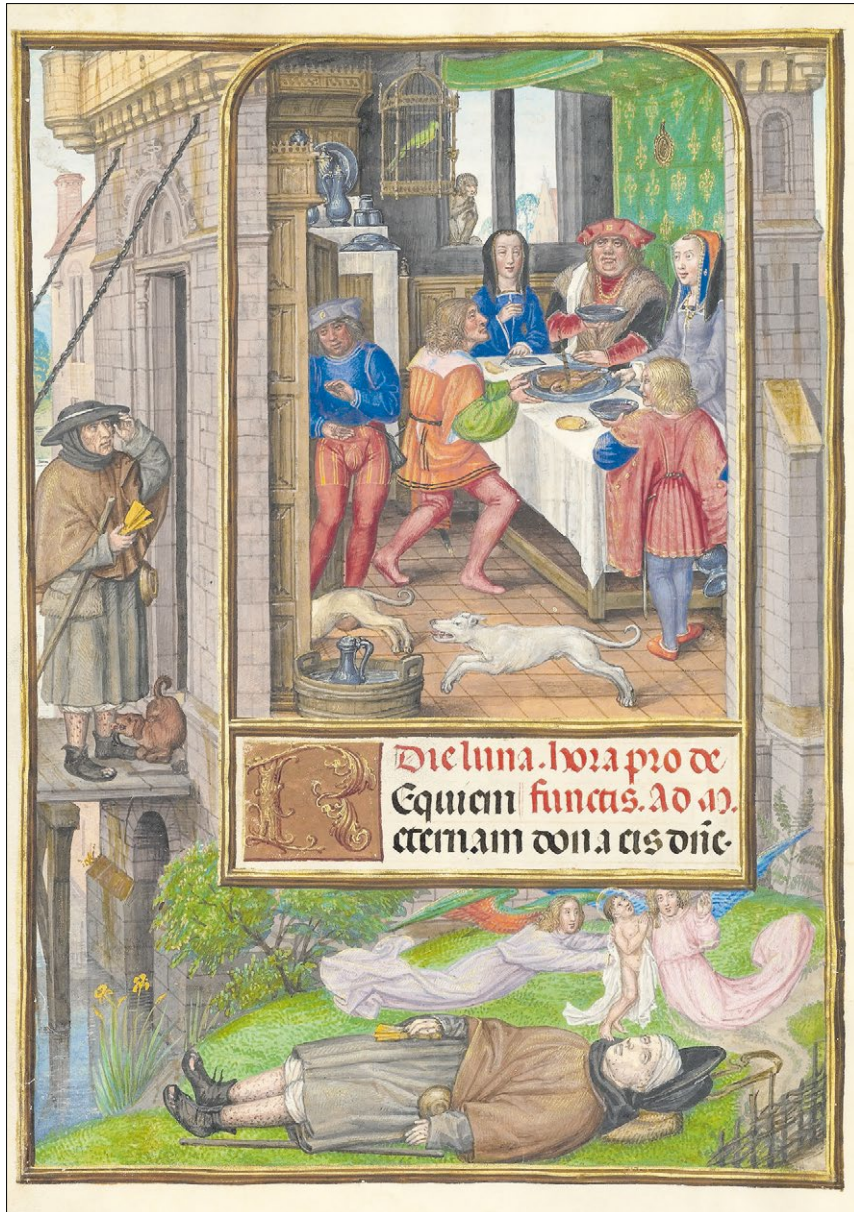 Die lune. hora pro de
REquiem functis. Ad M.
eternam dona eis dñe.